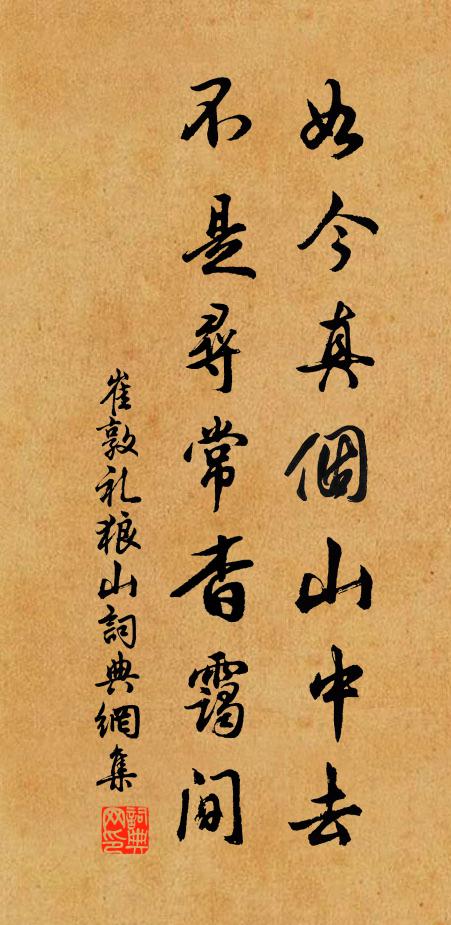 如今真個山中去
不是尋常杳靄間
崔敦礼狼山詞典網集
詞典网印